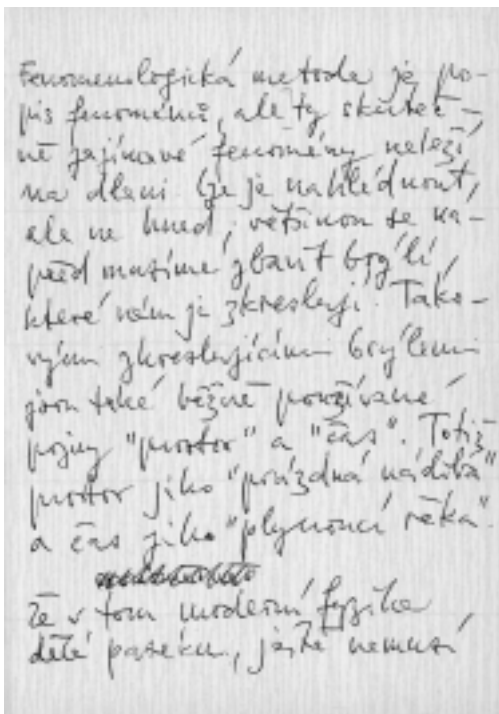 Fenomenologická metoda je po-
pis fenoménů, ale ty skuteč-
ně zajímavé fenomény neleží
na dlani. Lze je nahlédnout,
ale ne hned, většinou se na-
před musíme zbavit brýlí,
které nám je zkreslují. Tako-
vými zkreslujícími brýlemi
jsou také běžně používané
pojmy "prostor" a "čas". Totiž
prostor jako "prázdná nádoba"
a čas jako "plynoucí řeka".
že v tom moderní fyzika
dělá paseku, ještě nemusí